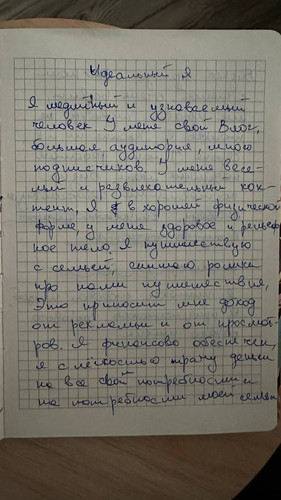 Идеальный я
Я медийный и узноваемый
человек. У меня свой Влог,
большая аудитория, много
подписчиков. У меня весе-
лый и развлекательный кон-
тент, Я в хорошей физической
форме у меня здоровое и рельеф
ное тело. Я путешествую
с семьей, снимаю ролики
про наши путешествия,
Это приносит мне доход
от рекламы и от просмот-
ров. Я финансово обеспечен,
я с лёгкостью трачу деньги
на все свои потребности и
на потребности моей семьи